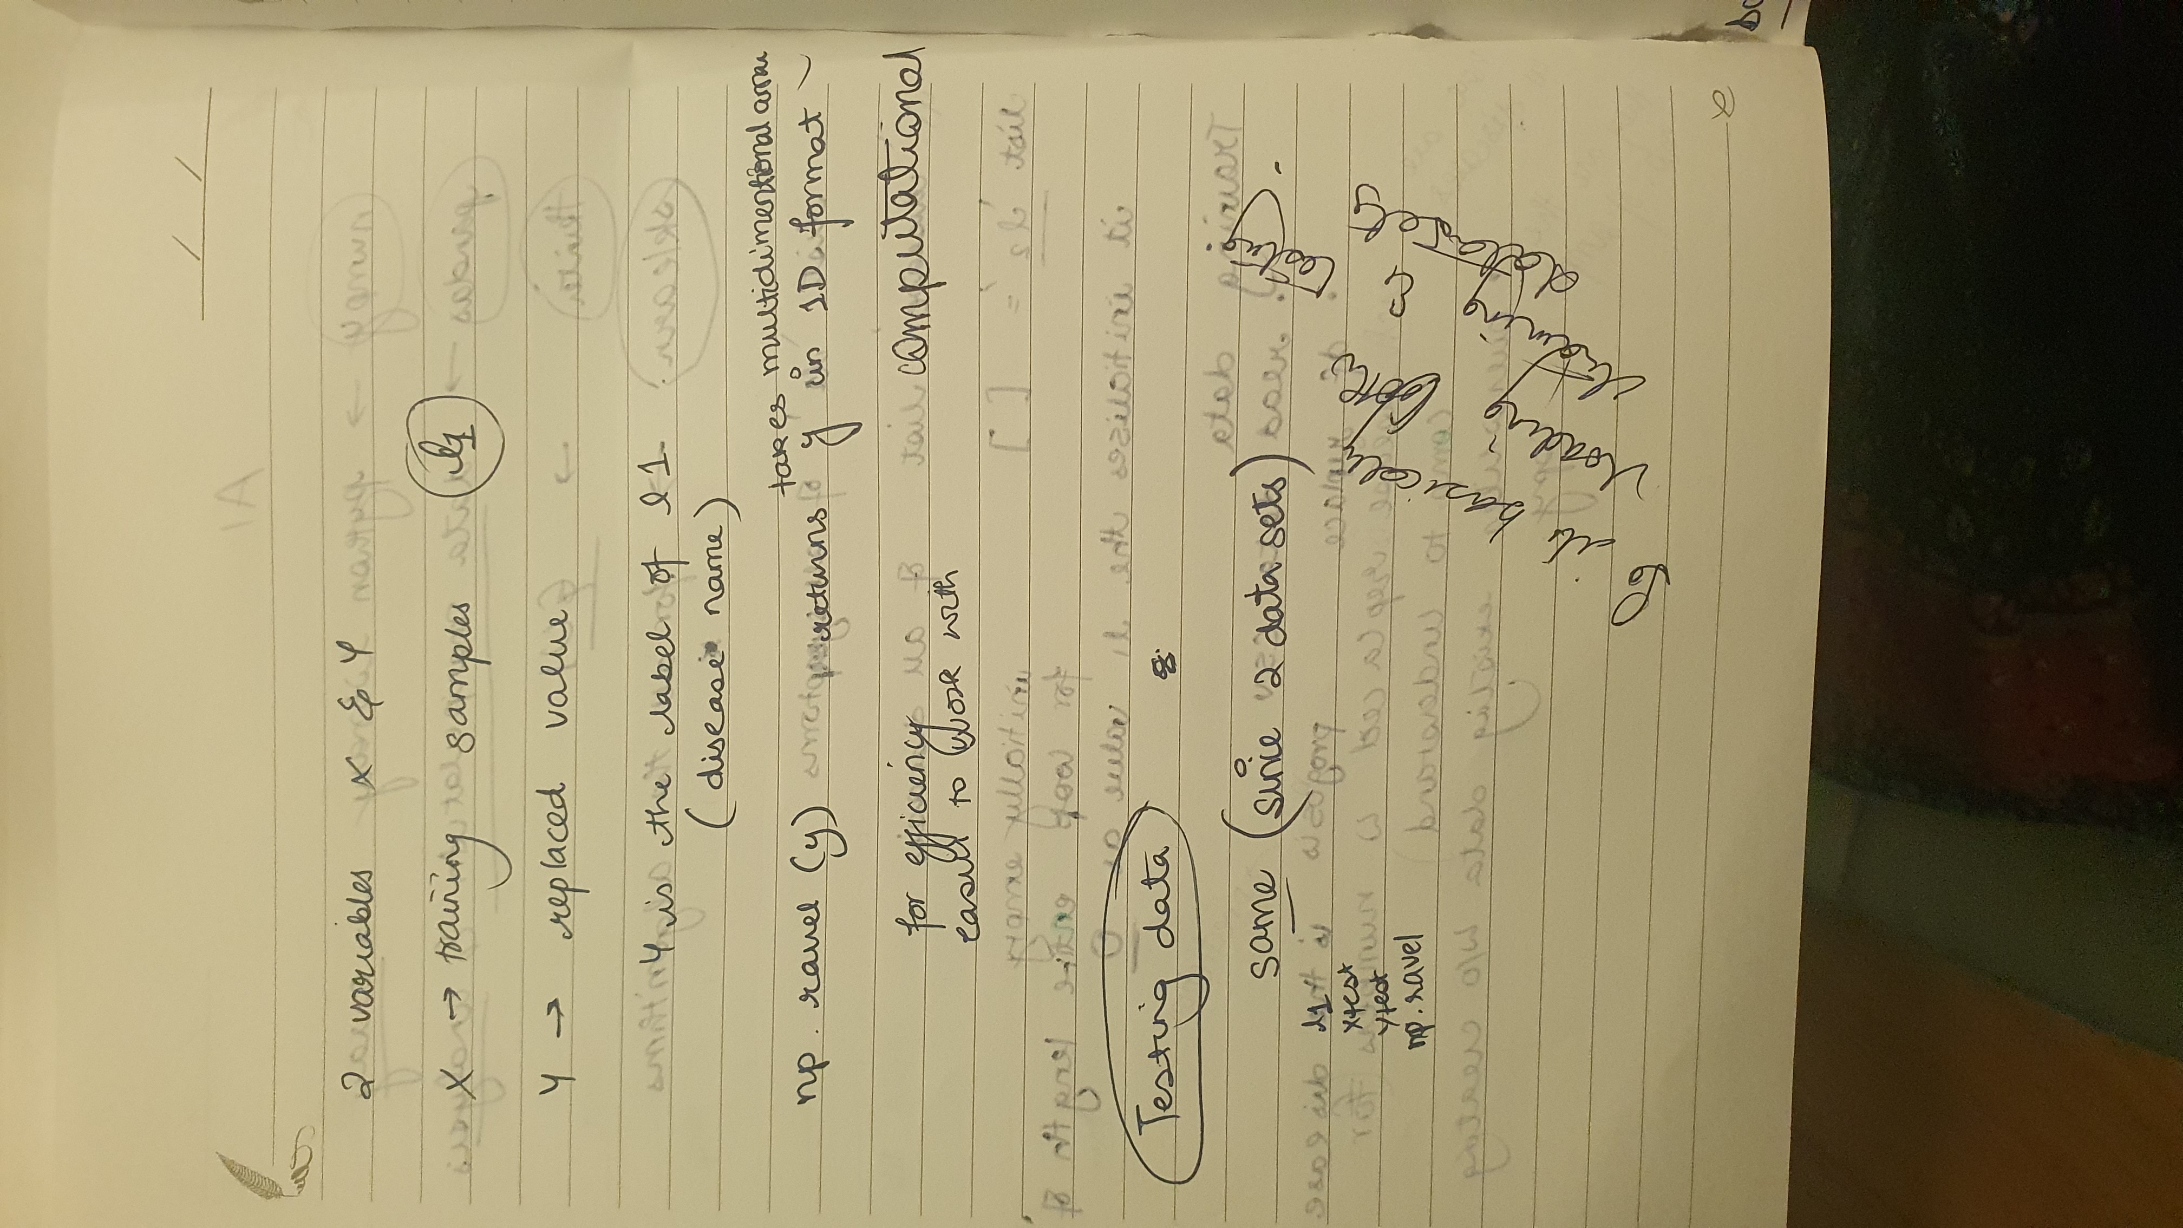 2 variables x & y
x → training samples l1
y → replaced value
y is the label of l1
(disease name)
takes multidimentional
np. ravel (y) returns y in 1D format
for efficiency computational
easier to work with
Testing data :
same (since 2 data sets)
l1
xtest
ytest
np. ravel
so it basically
loading both
training &
testing
dataset